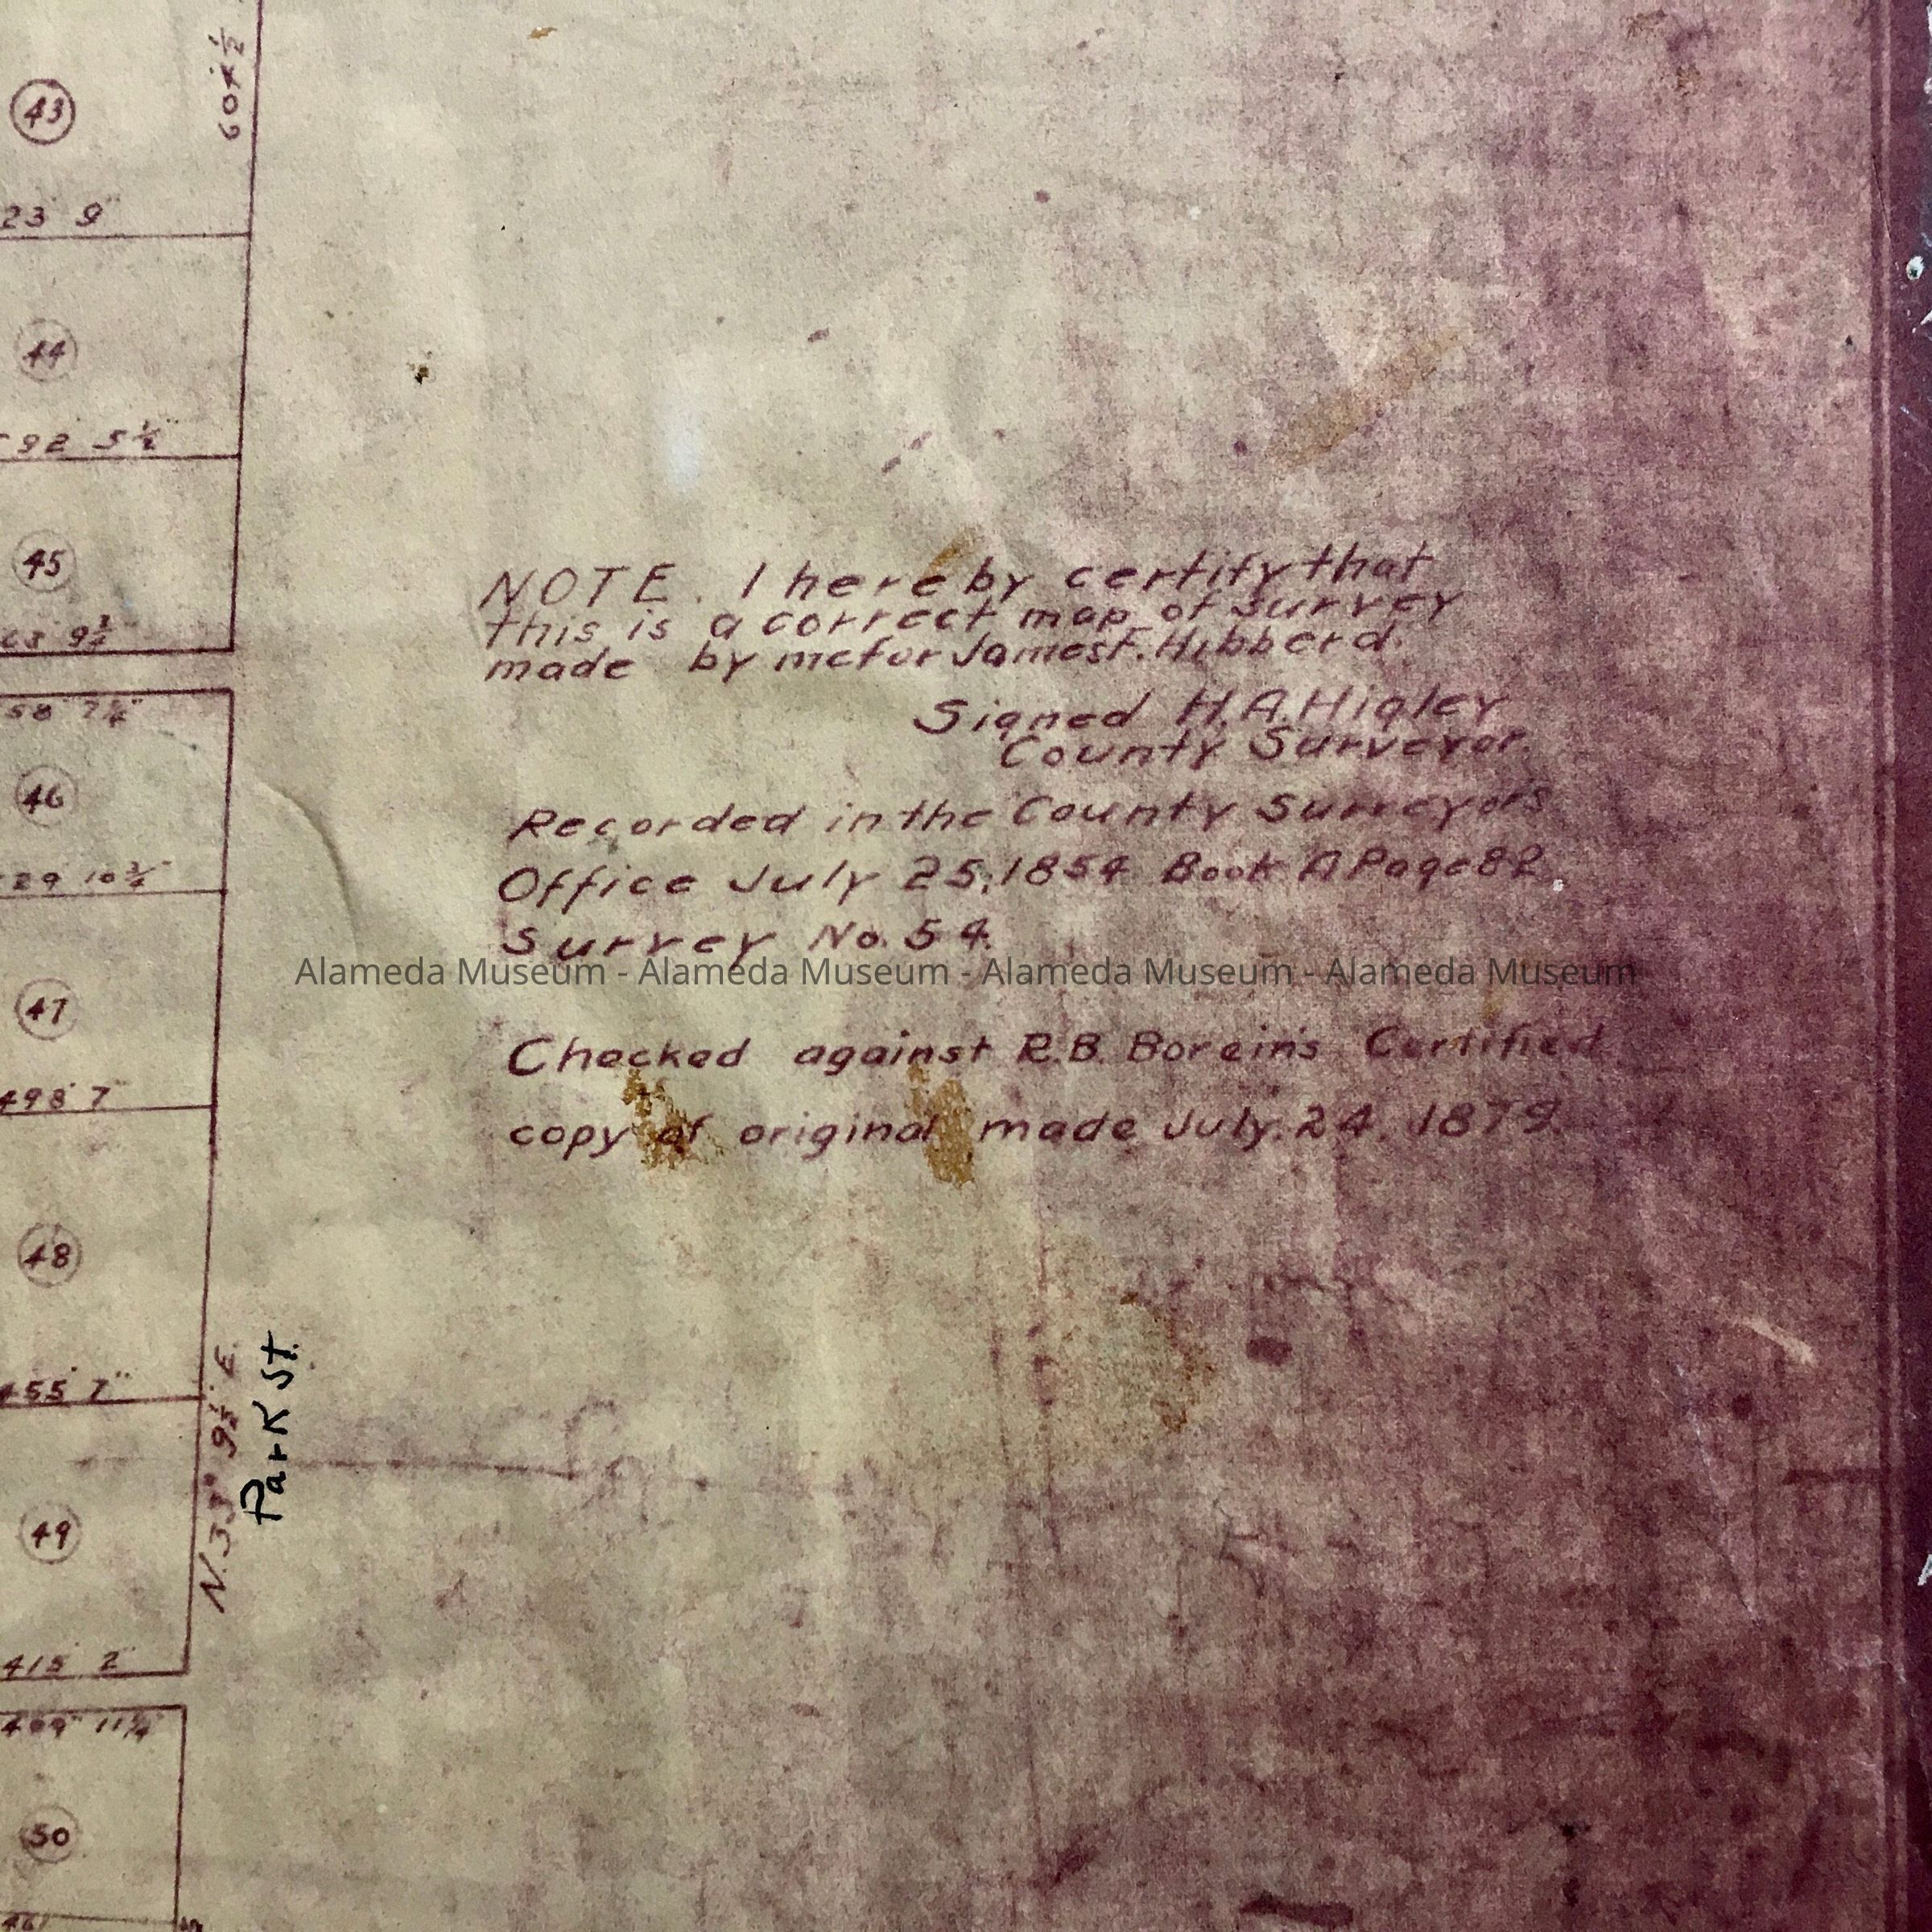 604' ½"
43
23' 9"
44
592' 5½"
45
63' 9¾"
58' 7¼"
46
29' 10¾"
47
498' 7"
48
455' 7"
N. 33° 9½' E.
Park St.
49
415' 2"
409' 11¼"
50
461
NOTE. I hereby certify that
this is a correct map of survey
made by me for James F. Hibberd.
Signed H.A. Higley
County Surveyor.
Recorded in the County Surveyors
Office July 25, 1854 Book A Page 82
Survey No. 54.
Alameda Museum - Alameda Museum - Alameda Museum - Alameda Museum
Checked against R.B. Borein's Certified
copy of original made July. 24, 1879.